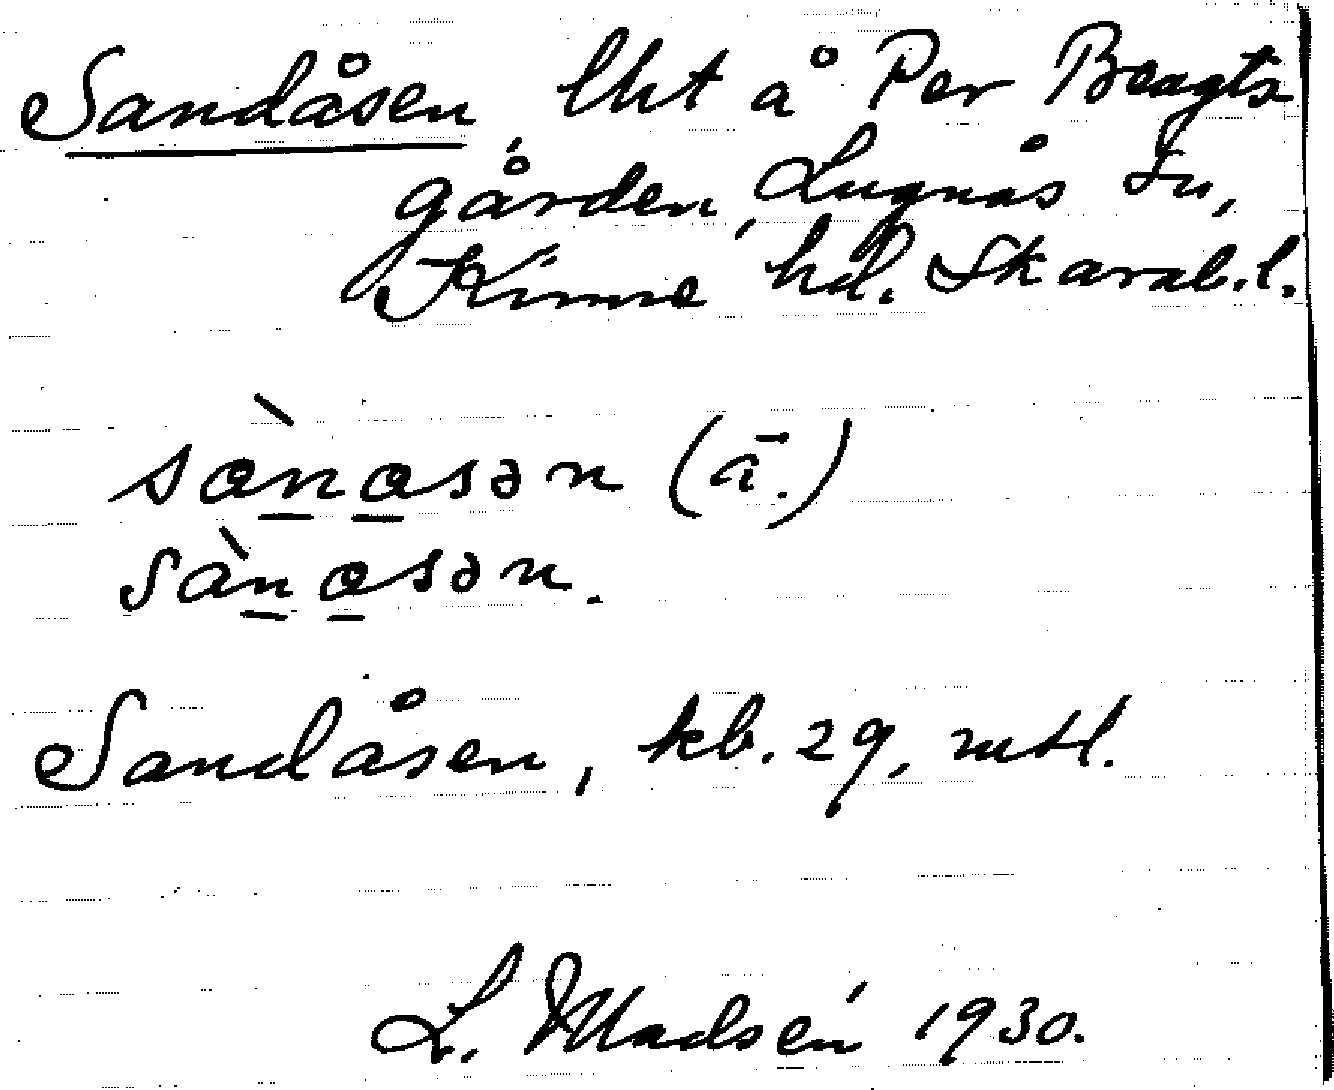 Sandåsen, lht å Per Bengts
gården, Lugnås sn,
Kinne hd. Skarab.l.
sànɑsən (ā.)
sànɑsən.
Sandåsen, kb. 29, mtl.
L. Madsén 1930.